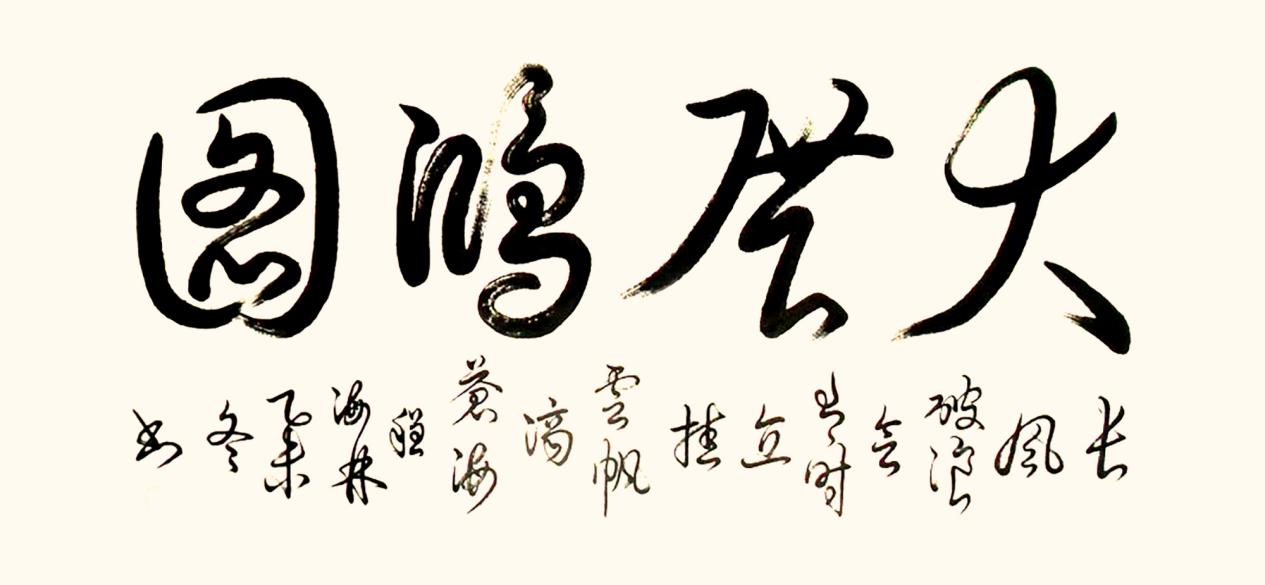 大展鸿图
长风破浪会有时直挂雲帆济蒼海程海林乙未冬书